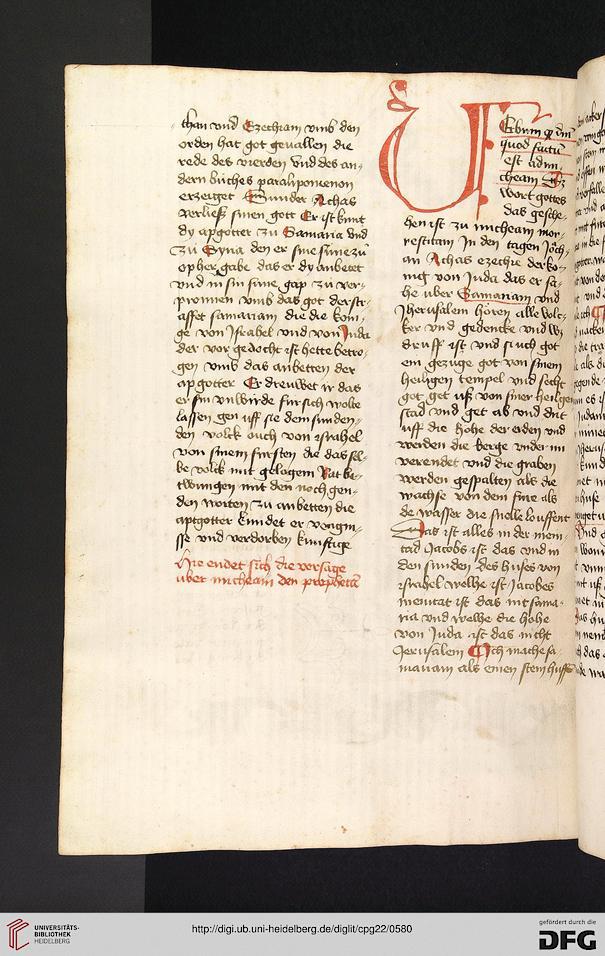 than vnd Ezechiam vmb den
orden hat got geuallen die
rede des vierden vnd des an-
dern bůches paralipomenon
erzeiget Besunder Achas
verließ sinen gott Er ist kunt
dy apgotter zu Samaria vnd
zu Syria den er sine sůne zů
opher gabe das er dy anbettet
vnd in sin sune gap zu ver-
prönnen vmb das got der str-
affet samariam die die kön-
ge von Israhel vnd von Juda
der vor gedocht ist hette betro-
gen vmb das anbetten der
apgotter Er dreuwet ir das
er sin vnwirde für sich wolte
lassen gen uff sie dem sunden-
den volck ouch von israhel
von sinem fursten die das sel-
be volck mit gelogem Rat be-
twungen mit den noch gen-
den worten zu anbetten die
aptgotter kundet er vengni-
sse vnd verdorben kunftige
Hie endet sich die vorsage
uber micheam den propheten
Verbum domini
quod factum
est ad mi-
cheam Daz
wort gottes
das gesche-
hen ist zu micheam mor-
restitam In den tagen Joch-
an Achas ezechie der ko-
nig von Juda das er sa-
he uber Samariam vnd
Jherusalem hören alle volc-
ker vnd gedencke vnd wz
druff ist vnd si uch got
ein gezuge got von sinem
heiligen tempel vnd secht
got get uß von siner heiligen
stad vnd get ab vnd drit
uff die hohe der erden vnd
werden die berge vnder im
verendet vnd die graben
werden gespalten als die
wachse von dem fure als
de wasser die snelle louffent
Das ist alles in der mein-
tad Jacobs ist das vnd in
den sunden des huses von
israhel welhe ist Jacobes
meintat ist das nit sama-
ria vnd welhe die hohe
von Juda ist das nicht
Jerusalem Ich mache sa-
mariam als einen stein huffe
UNIVERSITÄTS-
BIBLIOTHEK
HEIDELBERG
http://digi.ub.uni-heidelberg.de/diglit/cpg22/0580
gefördert durch die
DFG